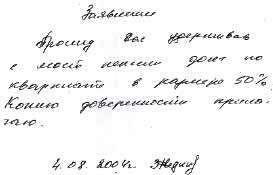 Заявление
Прошу Вас удерживать
с моей пенсии долг по
квартплате в размере 50%.
Копию доверенности прила-
гаю.
4.08.2004г.